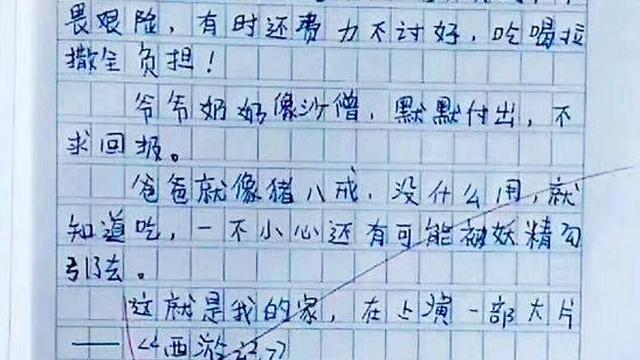 畏艰险，有时还费力不讨好，吃喝拉
撒全负担！
爷爷奶奶像沙僧，默默付出，不
求回报。
爸爸就像猪八戒，没什么用，就
知道吃，一不小心还有可能被妖精勾
引去。
这就是我的家，在上演一部大片
——《西游记》